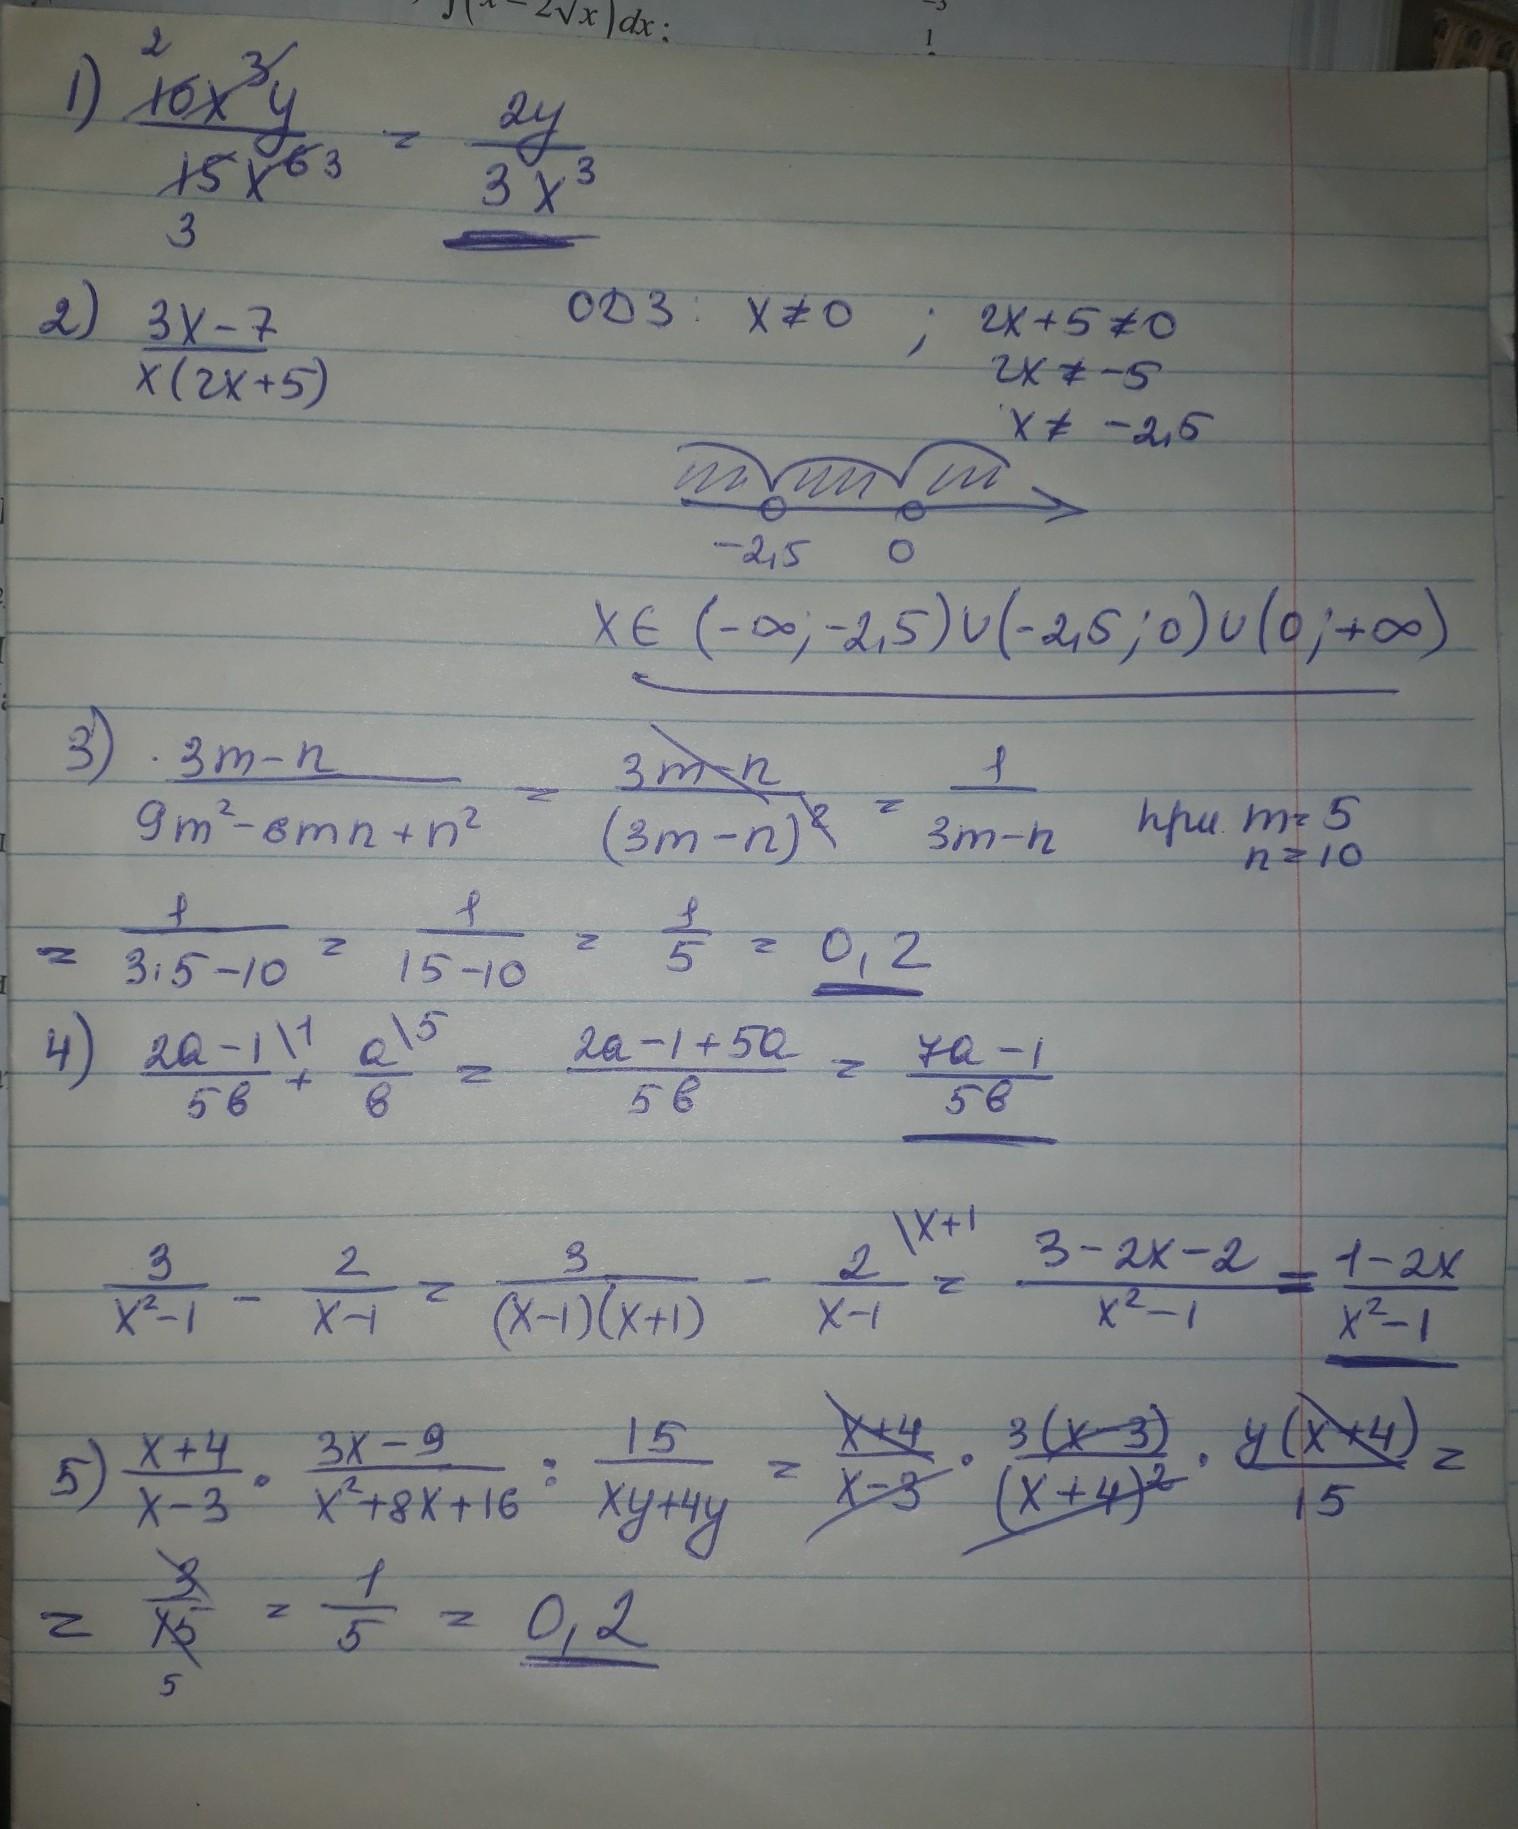 ∫(x − 2√x)dx;
1) 10x³y / 15x⁶ = 2y / 3x³
2) (3x−7) / x(2x+5) ОДЗ: x≠0 ; 2x+5≠0
2x≠−5
x≠ −2,5
−2,5 0
x∈ (−∞;−2,5)∪(−2,5;0)∪(0;+∞)
3) (3m−n) / (9m²−6mn+n²) = (3m−n) / (3m−n)² = 1 / (3m−n) при m=5
n=10
= 1 / (3·5−10) = 1 / (15−10) = 1/5 = 0,2
4) (2a−1\1) / 5в + a\5 / в = (2a−1+5a) / 5в = (7a−1) / 5в
3 / (x²−1) − 2 / (x−1) = 3 / (x−1)(x+1) − 2\x+1 / (x−1) = (3−2x−2) / (x²−1) = (1−2x) / (x²−1)
5) (x+4) / (x−3) · (3x−9) / (x²+8x+16) : 15 / (xy+4y) = (x+4) / (x−3) · 3(x−3) / (x+4)² · y(x+4) / 15 =
= 3/15 = 1/5 = 0,2